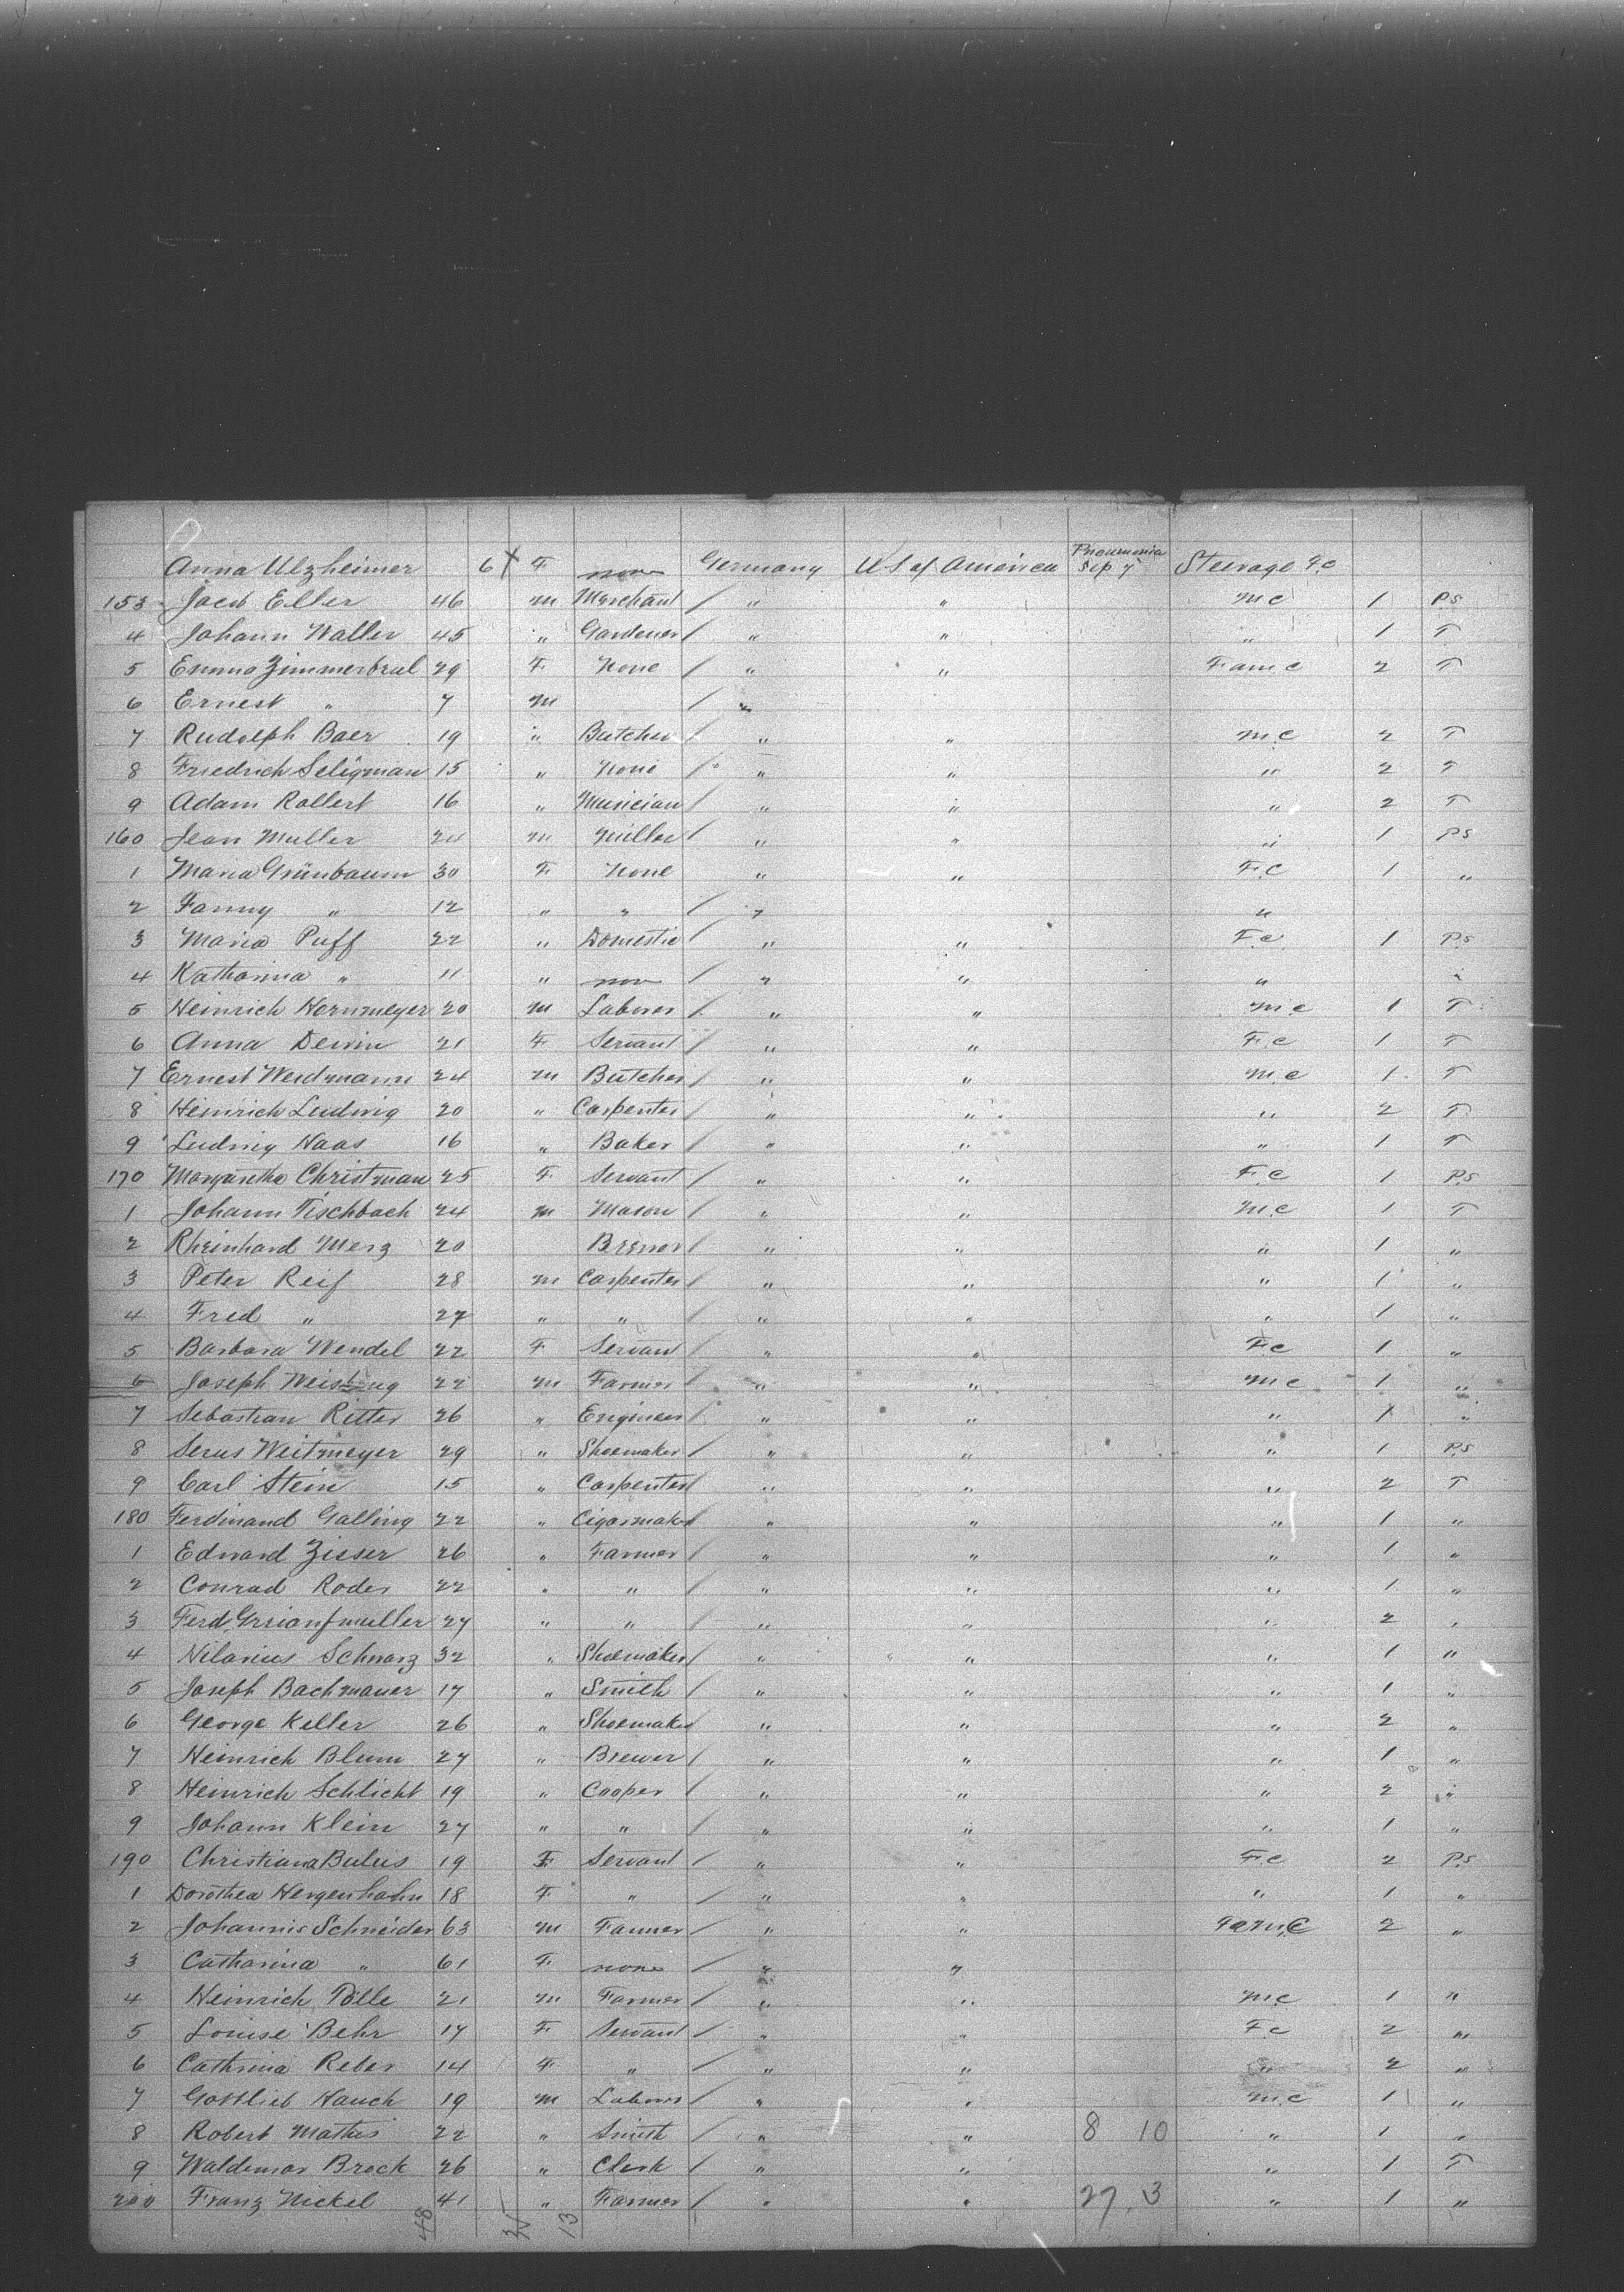 Anna Ulzheimer 6 F none Germany U S of America Pneumonia Sep 7 Steerage F.c
153 Jacob Eller 46 m Merchant / " " m c 1 P.S
4 Johann Walter 45 " Gardener / " " " 1 T
5 Emma Zimmerbral 29 F None / " " Fam.c 2 T
6 Ernest " 7 m / "
7 Rudolph Baer 19 " Butcher / " " m.c 2 T
8 Friedrich Seligman 15 " None / " " " 2 T
9 Adam Rollert 16 " Musician / " " " 2 T
160 Jean Muller 24 m Miller / " " " 1 PS
1 Maria Grünbaum 30 F None " " F.C 1 "
2 Fanny " 12 " " / " "
3 Maria Puff 22 " Domestic / " " F.c 1 P.s
4 Katharina " 11 " non / " " " "
5 Heinrich Hornmeyer 20 m Laborer / " " m.c 1 T
6 Anna Deivin 21 F Servant / " " F.c 1 T
7 Ernest Weidmann 24 m Butcher / " " m.c 1 T
8 Heinrich Ludwig 20 " Carpenter / " " " 2 T
9 Ludwig Haas 16 " Baker / " " " 1 T
170 Margaretha Christman 25 F Servant / " " F.c 1 P.S
1 Johann Fischbach 24 m Mason / " " m.c 1 T
2 Rheinhard Merz 20 Brewer / " " " 1 "
3 Peter Reif 28 m Carpenter / " " " 1 "
4 Fred " 27 " " / " " " 1 "
5 Barbara Wendel 22 F Servant / " " F.c 1 "
6 Joseph 22 m Farmer / " " m c 1 "
7 Sebastian Ritter 26 " Engineer / " " " 1 "
8 Serus Weitmeyer 29 " Shoemaker / " " " 1 P.S
9 Carl Stein 15 " Carpenter / " " " 2 T
180 Ferdinand Galling 22 " Cigarmaker " " " 1 "
1 Edward Zisser 26 " Farmer / " " " 1 "
2 Conrad Roder 22 " " / " " " 1 "
3 Ferd. 27 " " / " " " 2 "
4 Hilarius Schwarz 32 " Shoemaker / " " " 1 "
5 Joseph Bachmauer 17 " Smith / " " " 1 "
6 George Keller 26 " Shoemaker " " " 2 "
7 Heinrich Blum 27 " Brewer / " " " 1 "
8 Heinrich Schlicht 19 " Cooper / " " " 2 "
9 Johann Klein 27 " " / " " " 1 "
190 Christiana Buleis 19 F Servant / " " F.c 2 P.S
1 Dorothea Hergenhahn 18 F " / " " " 1 "
2 Johannis Schneider 63 m Farmer / " " Fam.C 2 "
3 Catharina " 61 F none / " "
4 Heinrich Pölle 21 m Farmer / " " m.c 1 "
5 Louise Behr 17 F Servant / " " F c 2 "
6 Cathrina Reber 14 F " / " " " 2 "
7 Gottlieb Hauch 19 m Laborer / " " m.c 1 "
8 Robert Mathis 22 " Smith / " " 8 10 " 1 "
9 Waldemar Brock 26 " Clerk / " " " 1 T
200 Franz Nickel 41 " Farmer / " " 27. 3 " 1 "
48 13